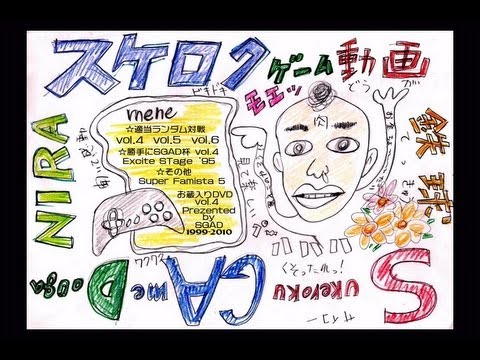 スケロク
ゲーム動画
どう が
ドキドキ
モエッ
肉
mene
☆適当ランダム対戦
vol.4 vol.5 vol.6
☆勝手にSGAD杯 vol.4
Excite STage '95
☆その他
Super Famista 5
お蔵入りDVD
vol.4
Prezented
by
SGAD
1999-2010
NIRA
鉄球
てっきゅう
ハハハハ
ワクワク
くそったれっ!
SUKeroKU
GAme
Douga